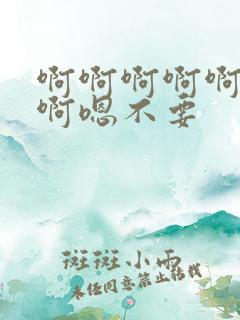 啊啊啊啊啊
啊嗯不要
斑斑小雨
未经同意禁止转载